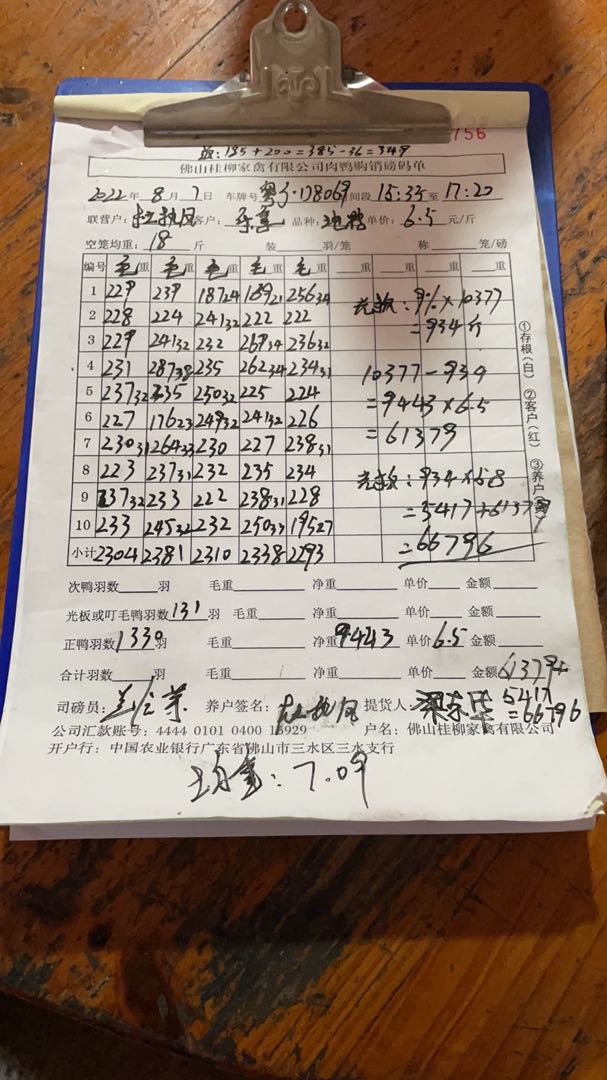 185+200=385-36=349
756
佛山桂柳家禽有限公司肉鸭购销磅码单
2022年8月7日 车牌号 间段15:35至17:20
联营户: 客户: 品种: 单价:6.5元/斤
空笼均重:18斤 装 羽/笼 称 笼/磅
编号 毛重 毛重 毛重 毛重 毛重 重 重 重 重
1 229 239 187 24 189 21 256 34
2 228 224 241 32 222 222
3 229 241 32 232 269 34 236 32
4 231 287 38 235 262 34 234 31
5 237 32 235 250 32 225 224
6 227 176 23 249 32 241 32 226
7 230 31 264 33 230 227 238 31
8 223 237 31 232 235 234
9 237 32 233 222 238 31 228
10 233 245 32 232 250 33 195 27
小计 2304 2381 2310 2338 2293
光板:9%×10377
=934斤
10377-934
=9443×6.5
=61379
光板:934×5.8
=5417+61379
=66796
①存根(白) ②客户(红) ③养户
次鸭羽数 羽 毛重 净重 单价 金额
光板或叮毛鸭羽数131羽 毛重 净重 单价 金额
正鸭羽数1330羽 毛重 净重9443 单价6.5 金额
合计羽数 羽 毛重 净重 单价 金额61379+
司磅员: 养户签名: 提货人: 5417
=66796
公司汇款账号:4444 0101 0400 15929 户名:佛山桂柳家禽有限公司
开户行:中国农业银行广东省佛山市三水区三水支行
均重:7.09